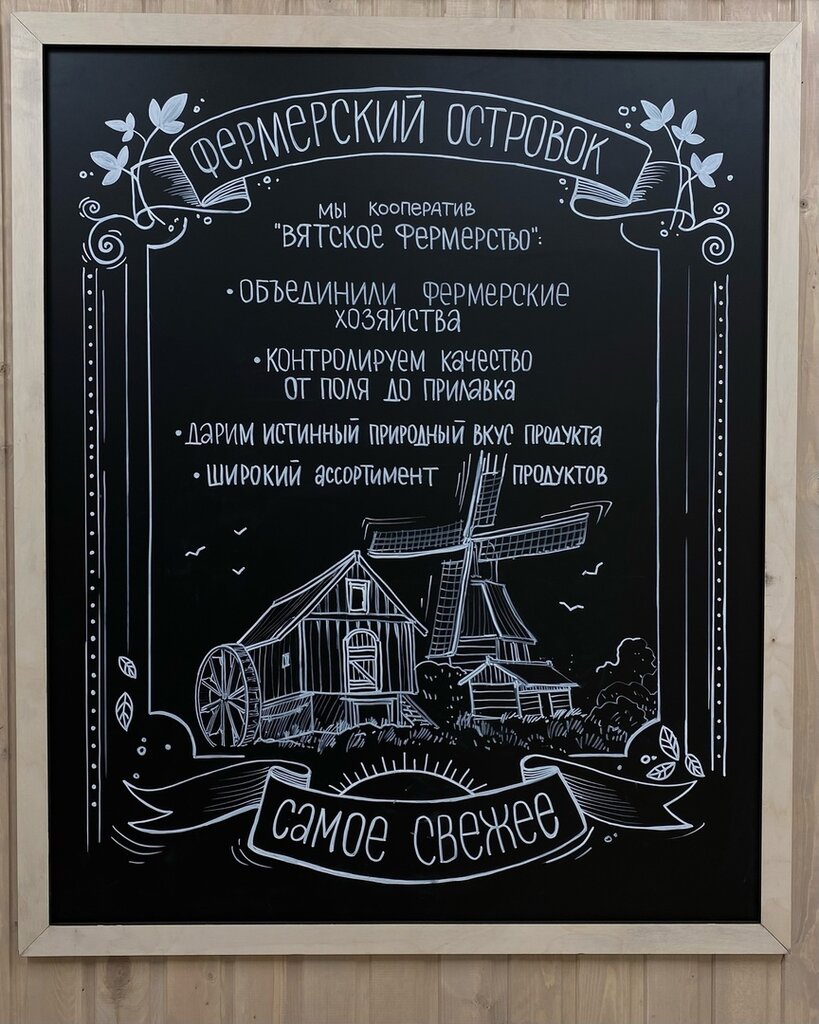 ФЕРМЕРСКИЙ ОСТРОВОК
МЫ КООПЕРАТИВ
"ВЯТСКОЕ ФЕРМЕРСТВО":
•ОБЪЕДИНИЛИ ФЕРМЕРСКИЕ
ХОЗЯЙСТВА
•КОНТРОЛИРУЕМ КАЧЕСТВО
ОТ ПОЛЯ ДО ПРИЛАВКА
•ДАРИМ ИСТИННЫЙ ПРИРОДНЫЙ ВКУС ПРОДУКТА
•ШИРОКИЙ АССОРТИМЕНТ ПРОДУКТОВ
САМОЕ СВЕЖЕЕ